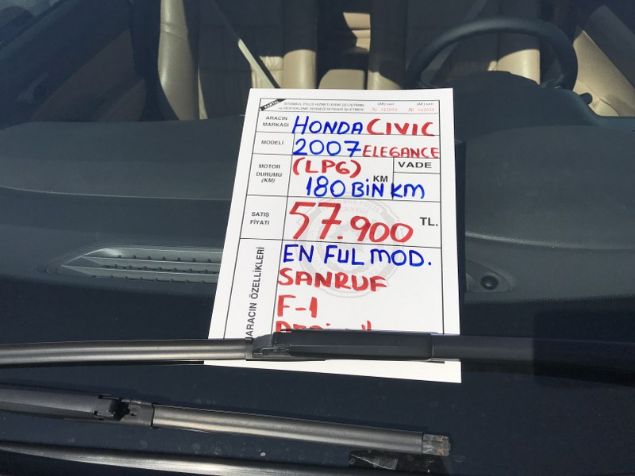 ARACIN MARKASI HONDA CIVIC
MODELİ 2007 ELEGANCE
MOTOR DURUMU (KM) (LPG) VADE
180 BİN KM KM
SATIŞ FİYATI 57.900 TL.
ARACIN ÖZELLİKLERİ
EN FUL MOD.
SANRUF
F-1